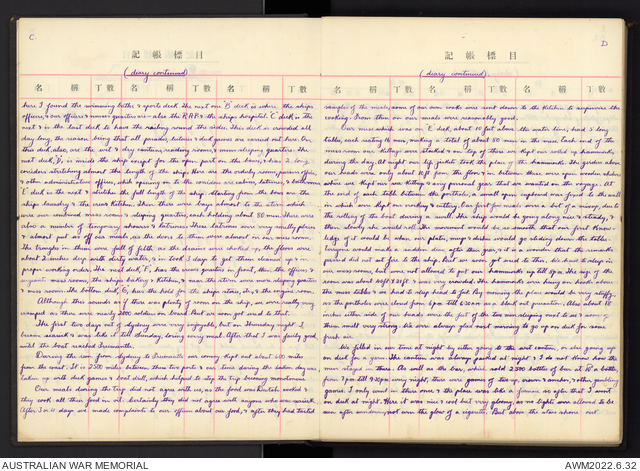 C.
記帳標目
(diary continued)
名 稱 丁數 名 稱 丁數 名 稱 丁數
here I found the swimming baths & sports deck the next one "B" deck is where the ships
officers, & our officers & mens quarters are - also the R.A.P. & the ships hospital. "C" deck is the
next & is the last deck to have the railing around the side, this deck is crowded all
day long, the reason being that all parades, lectures & deck games are carried out here. On
this deck also, are the wet & dry canteens, reading room, & mens sleeping quarters. The
next deck, "D", is inside the ship except for the open part on the bows, & has 2 long
corridors stretching almost the length of the ship. Here are the orderly rooms, pursers office,
& other administration offices, which opening on to the corridors are cabins, latrines, & bathrooms.
"E" deck is the next & stretches the full length of the ship. Starting from the bow are the
ships laundry & the crews kitchen. Then there were bays almost to the stern which
were our combined mess rooms & sleeping quarters, each holding about 80 men. There were
also a number of temporary showers & latrines. These latrines were very smelly places
& almost put us off our meals, as the doors to them were almost in our mess room.
The troughs in them were full of filth as the drains were choked up, the floors were
about 2 inches deep with dirty water, & it took 3 days to get them cleaned up & in
proper working order. The next deck, "F", has the crews quarters in front, then the officers &
sergeants mess room, the ships bakery & kitchen, & near the stern were more sleeping quarters
& mess rooms. The bottom deck, G, has the hold for the ships stores, etc, & the engine room.
Although this sounds as if there was plenty of room on the ship, we were really very
cramped as there were nearly 2000 soldiers on board. But we soon got used to that.
The first two days out of Sydney were very enjoyable, but on Thursday night I
became seasick & was like it till Monday, losing every meal. After that I was fairly good
until the boat reached Fremantle.
During the run from Sydney to Fremantle our convoy kept out about 600 miles
from the coast. It is 2500 miles between these two ports & our time during the seven days was
taken up with deck games & boat drill, which helped to stop the trip becoming monotonous.
Our meals during the trip did not agree with us, as the food was Scotch cooked &
they cook all their food in oil. Certainly they did not agree with anyone who was seasick.
After 3 or 4 days we made complaints to our officers about our food, & after they had tasted
D
記帳標目
(diary continued).
名 稱 丁數 名 稱 丁數 名 稱 丁數
samples of the meals, some of our own cooks were sent down to the kitchen to supervise the
cooking. From then on our meals were reasonably good.
Our mess which was on "E" deck, about 10 feet above the water line, had 5 long
tables, each seating 16 men, making a total of about 80 men in the mess. Each end of the
mess room our kitbags were stacked & on top of them we kept our rolled up hammocks
during the day. At night our life jackets took the place of the hammocks. The girders above
our heads were only about 7ft from the floor & in between these were open wooden shelves
where we kept our sea kitbag & any personal gear that we wanted on the voyage. At
the end of each table between the portholes, a small open cupboard was fixed to the wall
in which were kept our crockery & cutlery. Our first few meals were a bit of a novelty, due
to the rolling of the boat during a swell. The ship would be going along nice & steady, &
then slowly she would roll. The movement would be so smooth that our first know-
ledge of it would be when our plates, mugs & dishes would go sliding down the table.
Anyone would make a dive after their own gear, & it was a moments that the mess
period did not ruin for the ship. But we soon got used to this. We had to sleep in
our mess rooms, but were not allowed to put our hammocks up till 8pm. The size of the
room was about 40ft x 30ft & was very crowded. The hammocks were hung on hooks above
the mess tables & we had to sleep head to foot. By morning the place would be very stuffy
as the portholes were closed from 6pm till 6.30am as a black out precaution. Also about 18
inches either side of our heads were the feet of the two men sleeping next to us & some of
them smelt very strong. We were always glad next morning to go up on deck for some
fresh air.
We filled in our time at night by either going to the wet canteen, or else going up
on deck for a yarn. The canteen was always packed at night & I do not know how the
men stayed in there. As well as the bar, which sold 2,500 bottles of beer at 1/- a bottle
from 7pm till 8.30pm every night, there were games of two up, crown & anchor, & other gambling
games. I only went in there once & the place was like a furnace so after that I went
on deck at night. Here it was nice & cool but very gloomy, as no lights were allowed to be
seen after sundown, not even the glow of a cigarette. But above the stars shone out
AUSTRALIAN WAR MEMORIAL
AWM2022.6.32